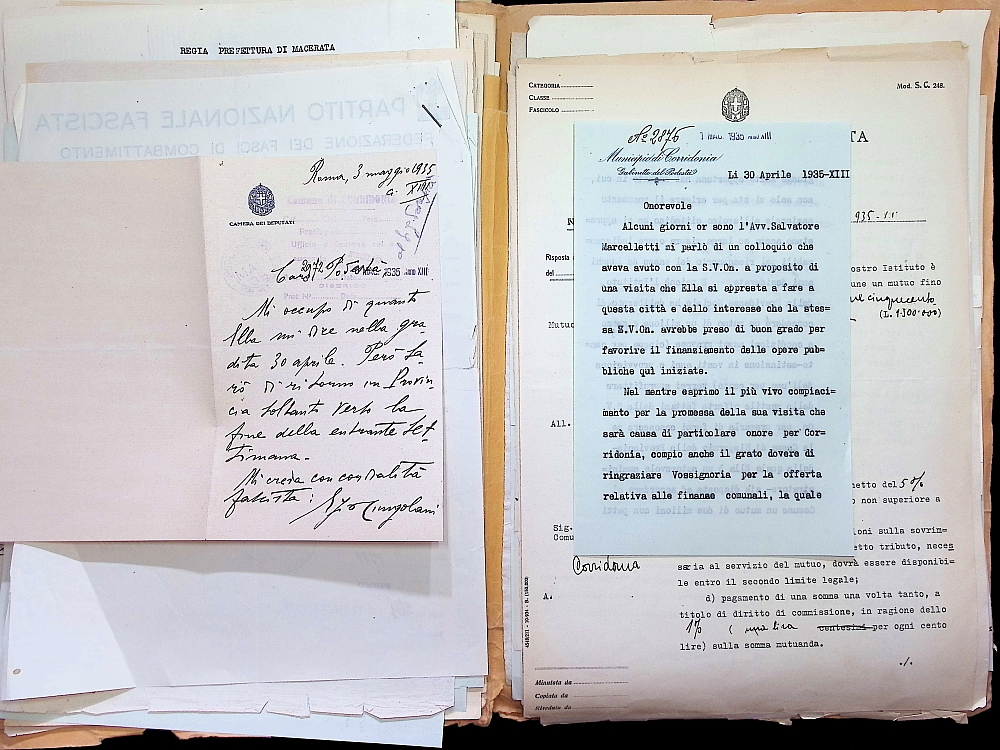 REGIA PREFETTURA DI MACERATA
PARTITO NAZIONALE FASCISTA
FEDERAZIONE DEI FASCI DI COMBATTIMENTO
Roma, 3 maggio 1935
a. XIII°
CAMERA DEI DEPUTATI
2972
1935 Anno XIII
Caro Podestà
Mi occupo di quanto
Ella mi dice nella gra-
dita 30 aprile. Però sa-
rò di ritorno in Provin-
cia soltanto verso la
fine della entrante set-
timana.
Mi creda con cordialità
fascista:
CATEGORIA
CLASSE
FASCICOLO
Mod. S. C. 248.
TA
N° 2876
1935 XIII
Municipio di Corridonia
Gabinetto del Podestà
Li 30 Aprile 1935-XIII
Onorevole
Alcuni giorni or sono l'Avv.Salvatore
Marcelletti mi parlò di un colloquio che
aveva avuto con la S.V.On. a proposito di
una visita che Ella si appresta a fare a
questa città e dello interesse che la stes=
sa S.V.On. avrebbe preso di buon grado per
favorire il finanziamento delle opere pub=
bliche quì iniziate.
Nel mentre esprimo il più vivo compiaci=
mento per la promessa della sua visita che
sarà causa di particolare onore per Cor=
ridonia, compio anche il grato dovere di
ringraziare Vossignoria per la offerta
relativa alle finanze comunali, la quale
935
Risposta
del
ostro Istituto è
une un mutuo fino
cinquecento
(L. 1.500.000)
Mutuo
All.
etto del 5%
o non superiore a
Sig.
Comu
ioni sulla sovrim=
etto tributo, neces
Corridonia
saria al servizio del mutuo, dovrà essere disponibi=
le entro il secondo limite legale;
A.
d) pagamento di una somma una volta tanto, a
titolo di diritto di commissione, in ragione dello
1% ( una lira centesimi per ogni cento
lire) sulla somma mutuanda.
./.
Minutata da
Copiata da
Riveduta da